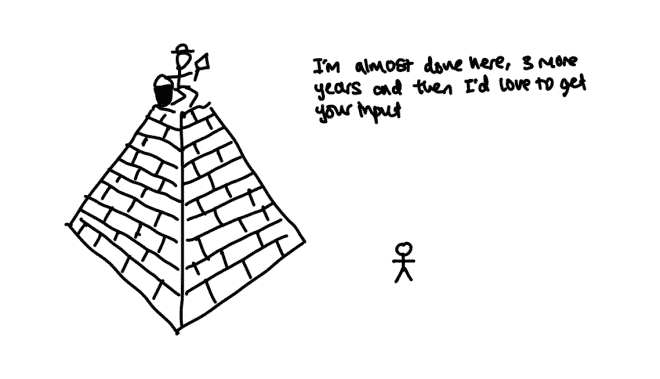 I'm almost done here, 3 more
years and then I'd love to get
your input